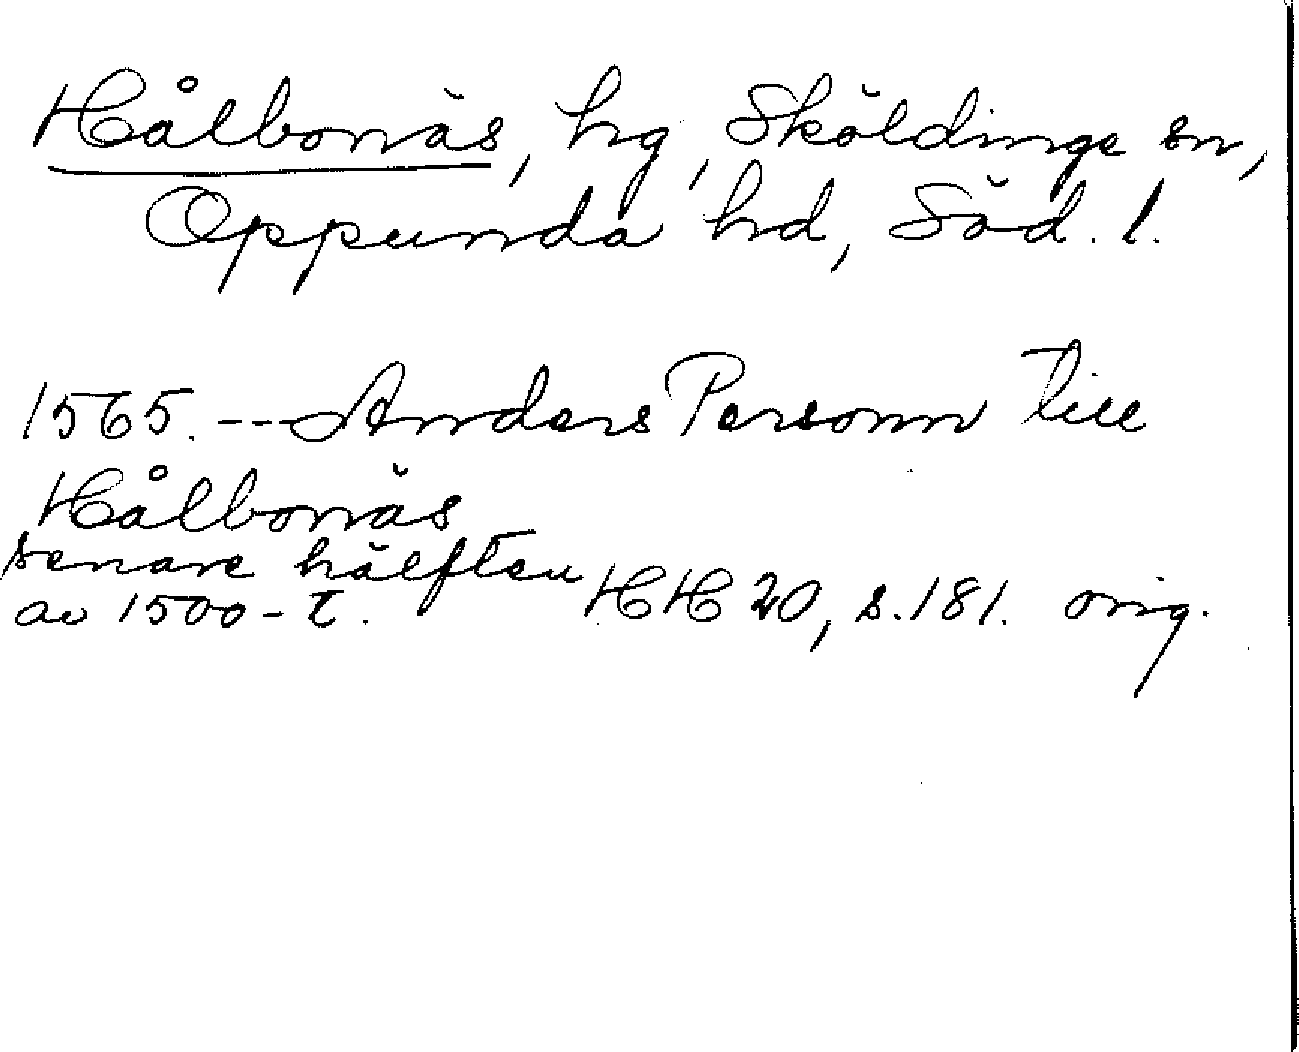 Hålbonäs, hg, Sköldinge sn,
Oppunda hd, Söd. l.
1565. --- Anders Personn till
Hålbonäs
senare hälften
av 1500-t. HH 20, s. 181. orig.